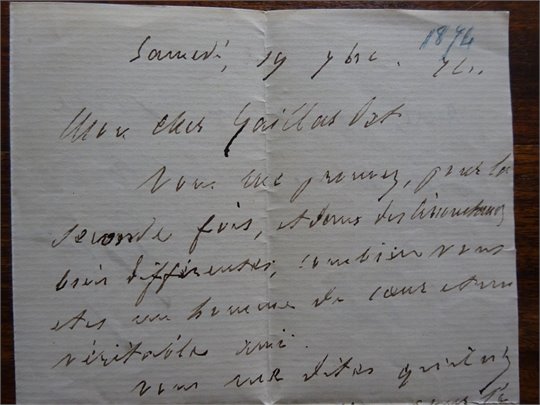 1874
Samedi, 19 7bre. 74.
Mon cher Gaillardet
Vous me prouvez, pour la
seconde fois, et dans des circonstances
bien différentes, combien vous
êtes un homme de cœur et un
véritable ami.
Vous me dites